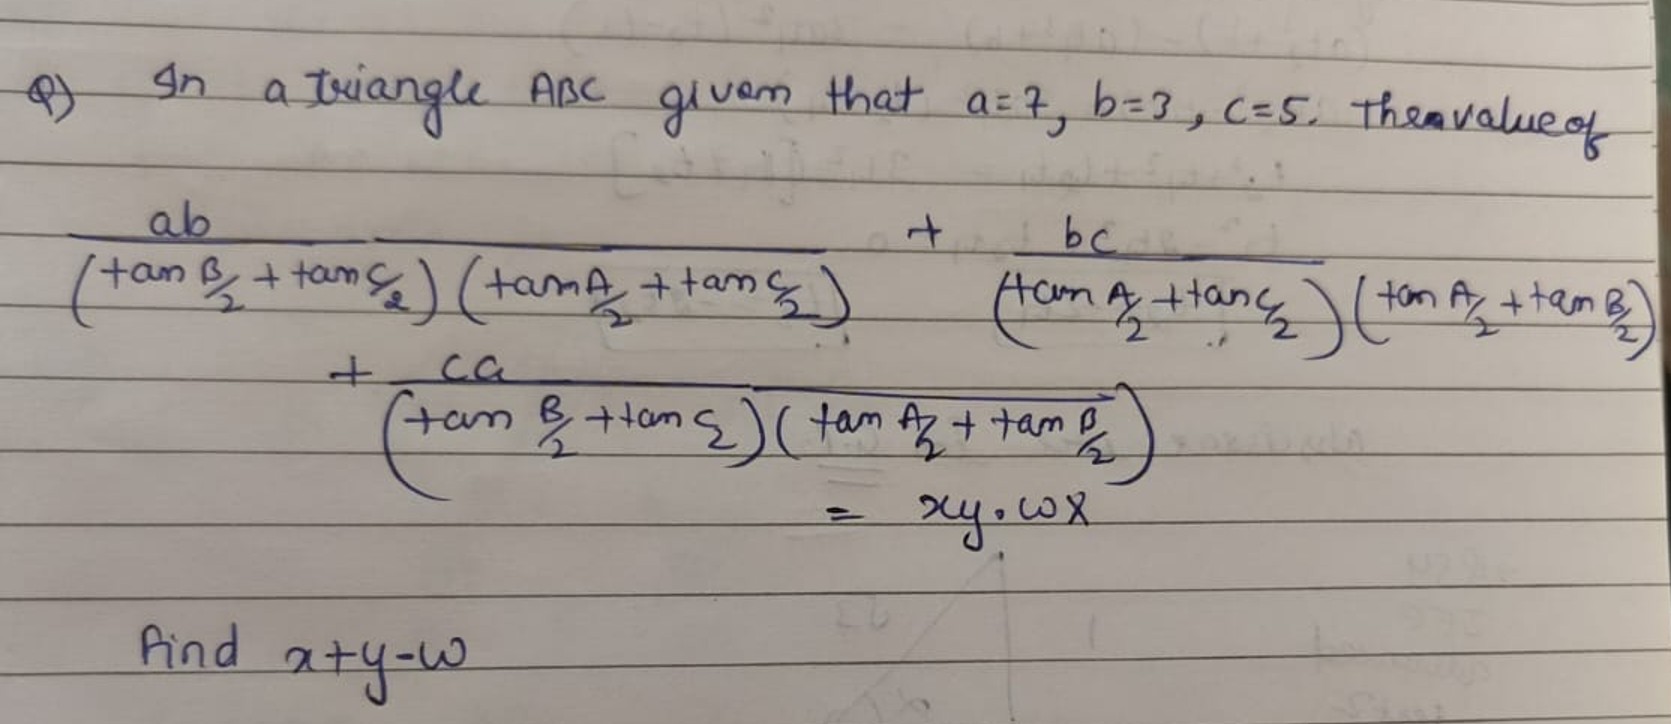 Q) In a triangle ABC given that a=7, b=3, c=5. Then value of
ab + bc
(tan B/2 + tan C/2) (tan A/2 + tan C/2) (tan A/2 + tan C/2) (tan A/2 + tan B/2)
+ ca
(tan B/2 + tan C/2) (tan A/2 + tan B/2)
= xy.wx
Find x+y-w